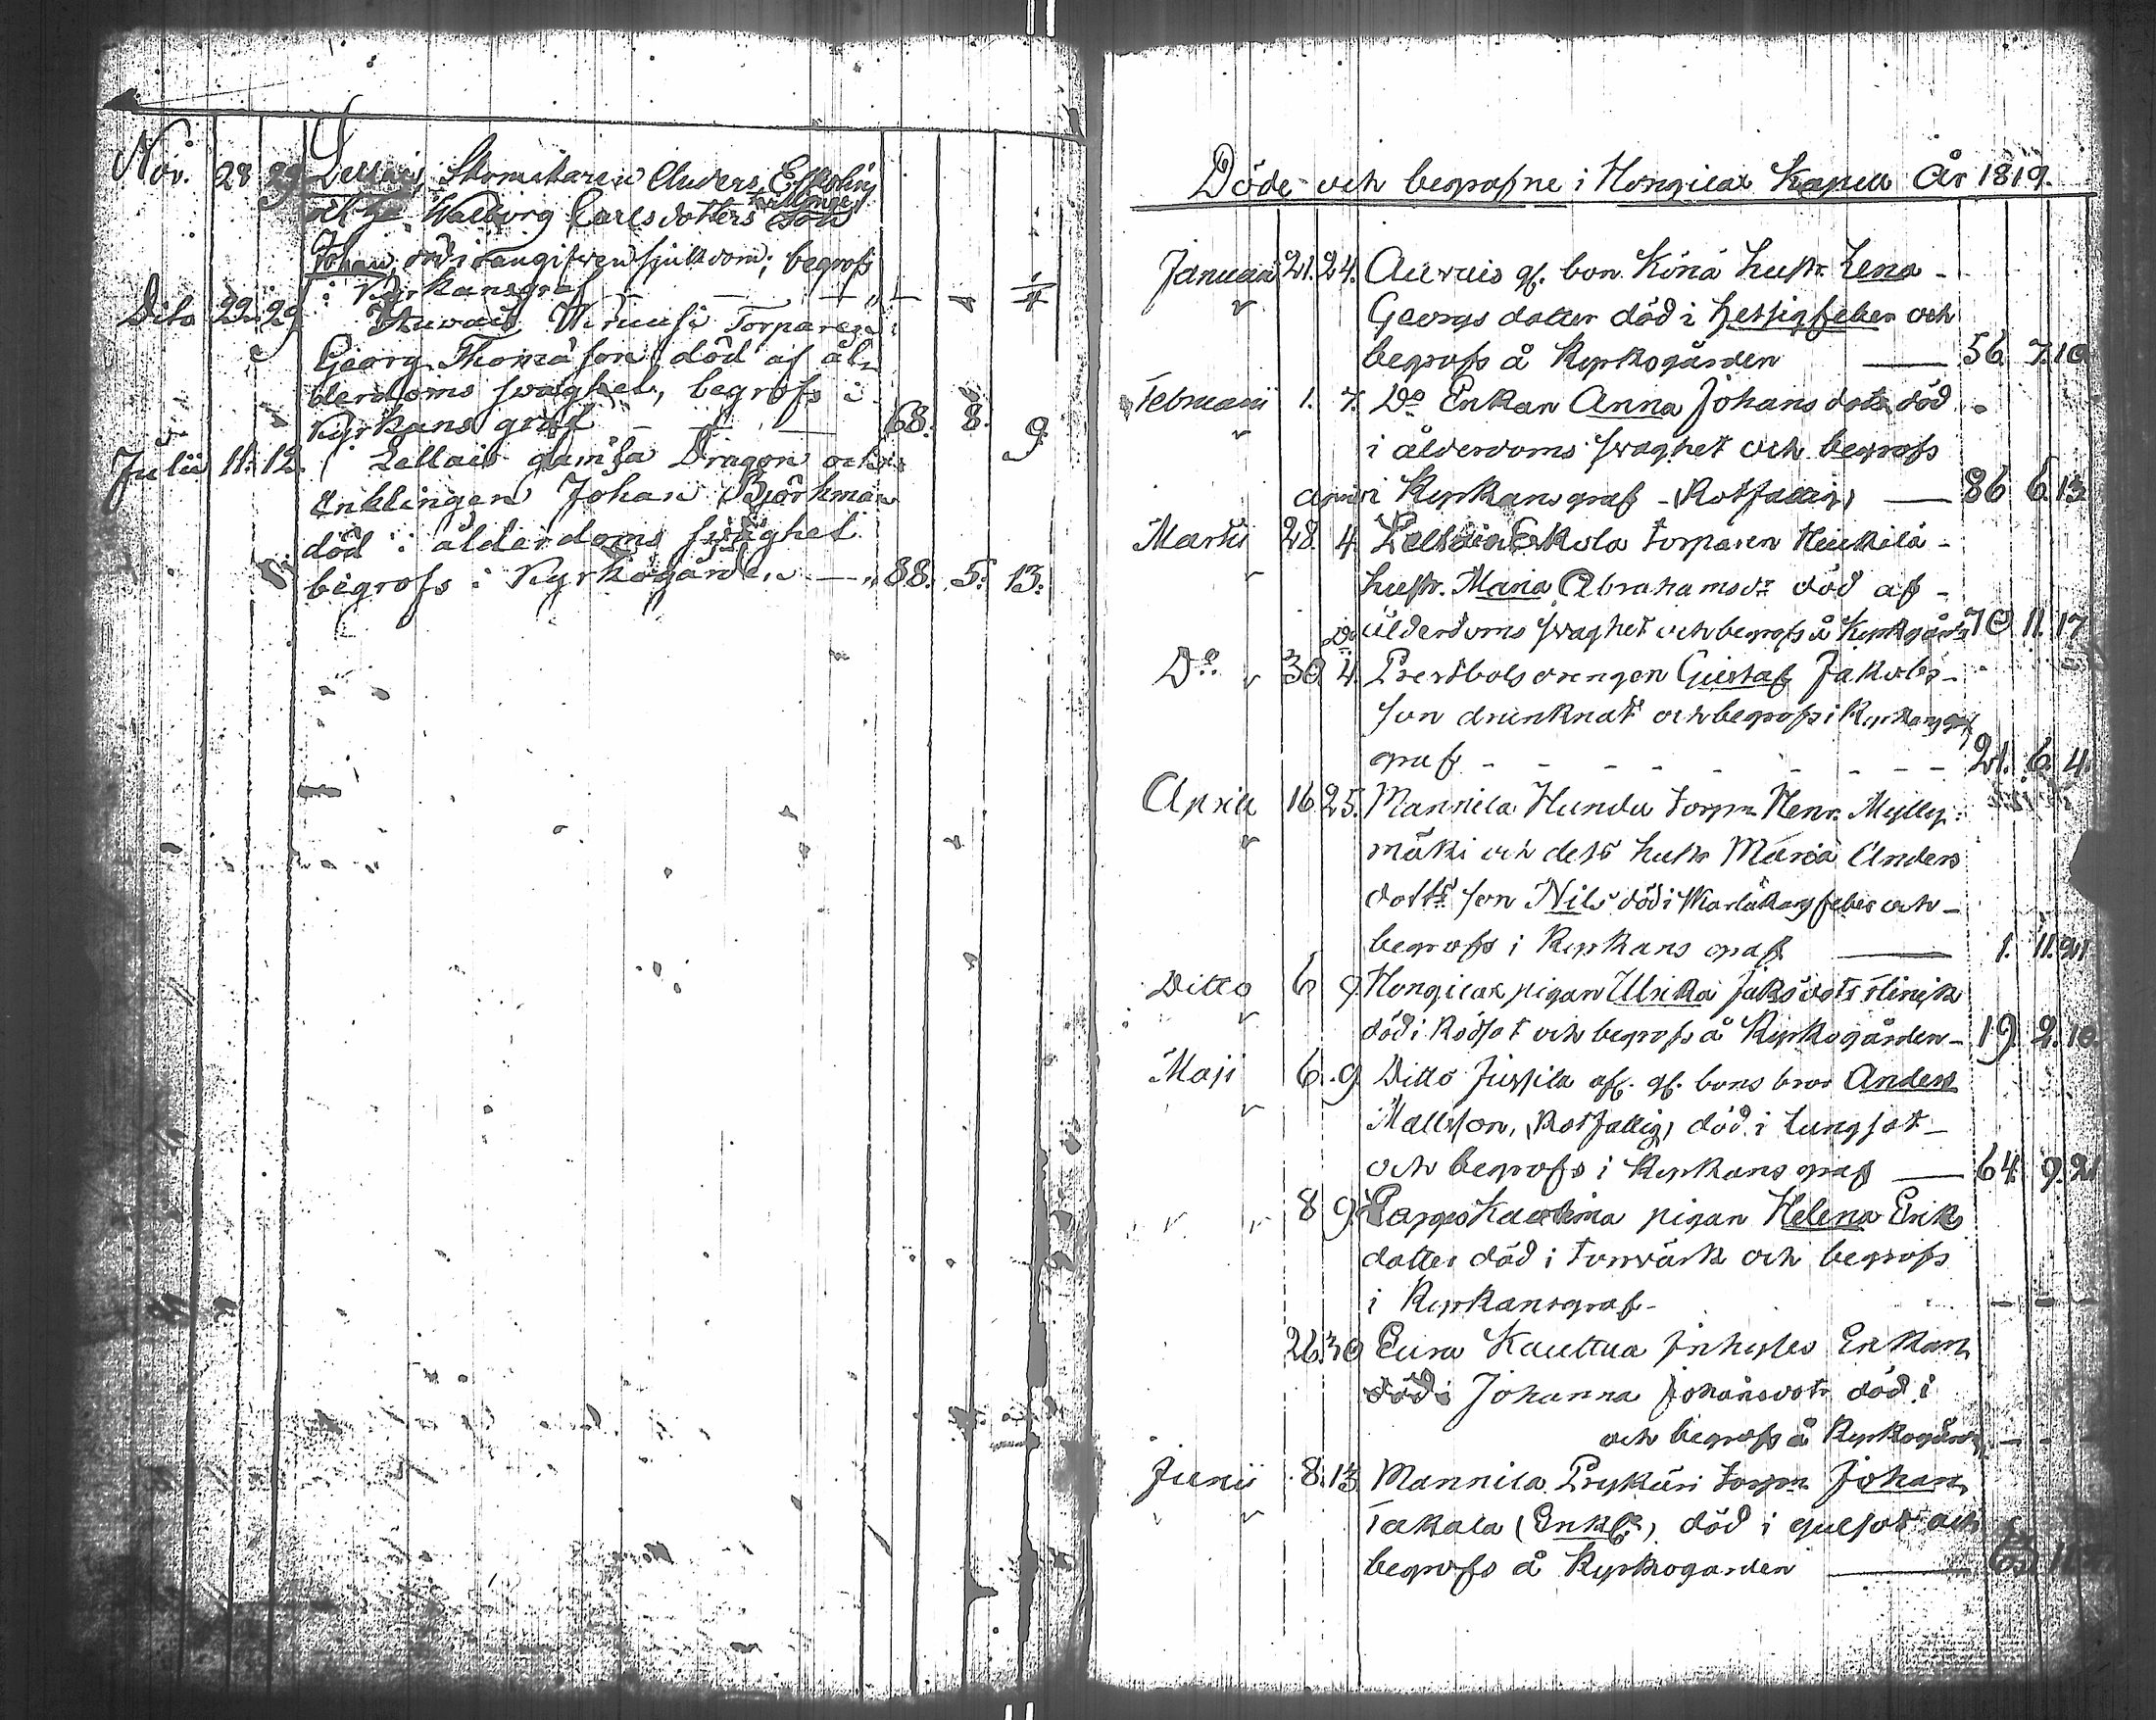 Nov. 28 29 Lellais Skomakaren Anders Eskohns
Walborg Carlsdotters son
Johan, död i oangifven sjukdom; begrofs
i Kyrkansgraf
Dito 22. 29. Torparen
Georg Thomasson, död af ål-
derdoms svaghet, begrofs i
Kyrkans graf 68. 8. 9
Julii 11. 12. Lellais gamla Dragon och
Enklingen Johan Björkman
död i ålderdoms svaghet
begrofs i Kyrkogården 88. 5. 13.
Döde och begrafne i Hongilax Kapell År 1819.
Januarii 21. 24. Auvais gl. bon. Kina hustr. Lena
Georgs dotter död i hetsigfeber och
begrofs å Kyrkogården 56 7. 10
Februarii 1. 7. Do Enkan Anna Johans dotr död
i ålderdoms svaghet och begrofs
i Kyrkans graf (Rotfallig) 86 6. 13
Martii 28. 4. Lellais Eskola torparen Heickilä
hustr. Maria Abrahamsdr död af
ålderdoms svaghet och begrofs å Kyrkogårdn 70 11. 17
Do 30 4. Prestbols drengen Gustaf Jakobs-
son drunknat och begrofs i Kyrkans
graf 21. 6. 4.
April 16 25. Mannila Hundu torpn Henr. Mylly-
mäki och dets hustr Maria Anders
dotts son Nils död i feber och
begrofs i Kyrkans graf 1. 11.
Ditto 6 9 Hongilax pigan Ulrika Jaks dotr
död i Rödsot och begrofs å Kyrkogården 19. 2. 10.
Maji 6. 9 Ditto Jussila gl. bons bror Anders
Mattsson, (Rotfallig) död i Lungsot
och begrofs i Kyrkans graf 64. 9. 21
8 9. pigan Helena Eriks
dotter död i torrvärk och begrofs
i Kyrkansgraf
26. 30 Eura Kauttua Inhyses Enkan
Johanna Johansdotr död i
och begrofs å Kyrkogårdn
Junii 8. 13 Mannila Prykäri torpn Johan
Takala (Enkl.) död i gulsot och
begrofs å Kyrkogarden